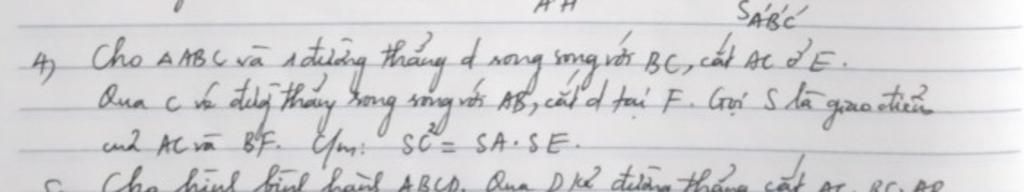 A'H'
S A'B'C'
4) Cho △ABC và 1 đường thẳng d song song với BC, cắt AC ở E.
Qua C vẽ đườg thẳng song song với AB, cắt d tại F. Gọi S là giao điểm
của AC và BF. C/m: SC² = SA.SE.
Cho hình bình hành ABCD. Qua D kẻ đường thẳng cắt AC, BC, AB